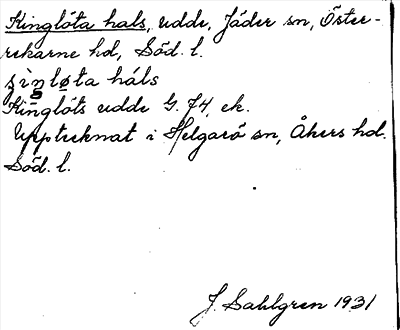 Kinglöta hals, udde, Jäder sn, Öster-
rekarne hd, Söd. l.
háls
Kinglöts udde G. J4, ek.
Upptecknat i Helgarö sn, Åkers hd.
Söd. l.
J. Sahlgren 1931